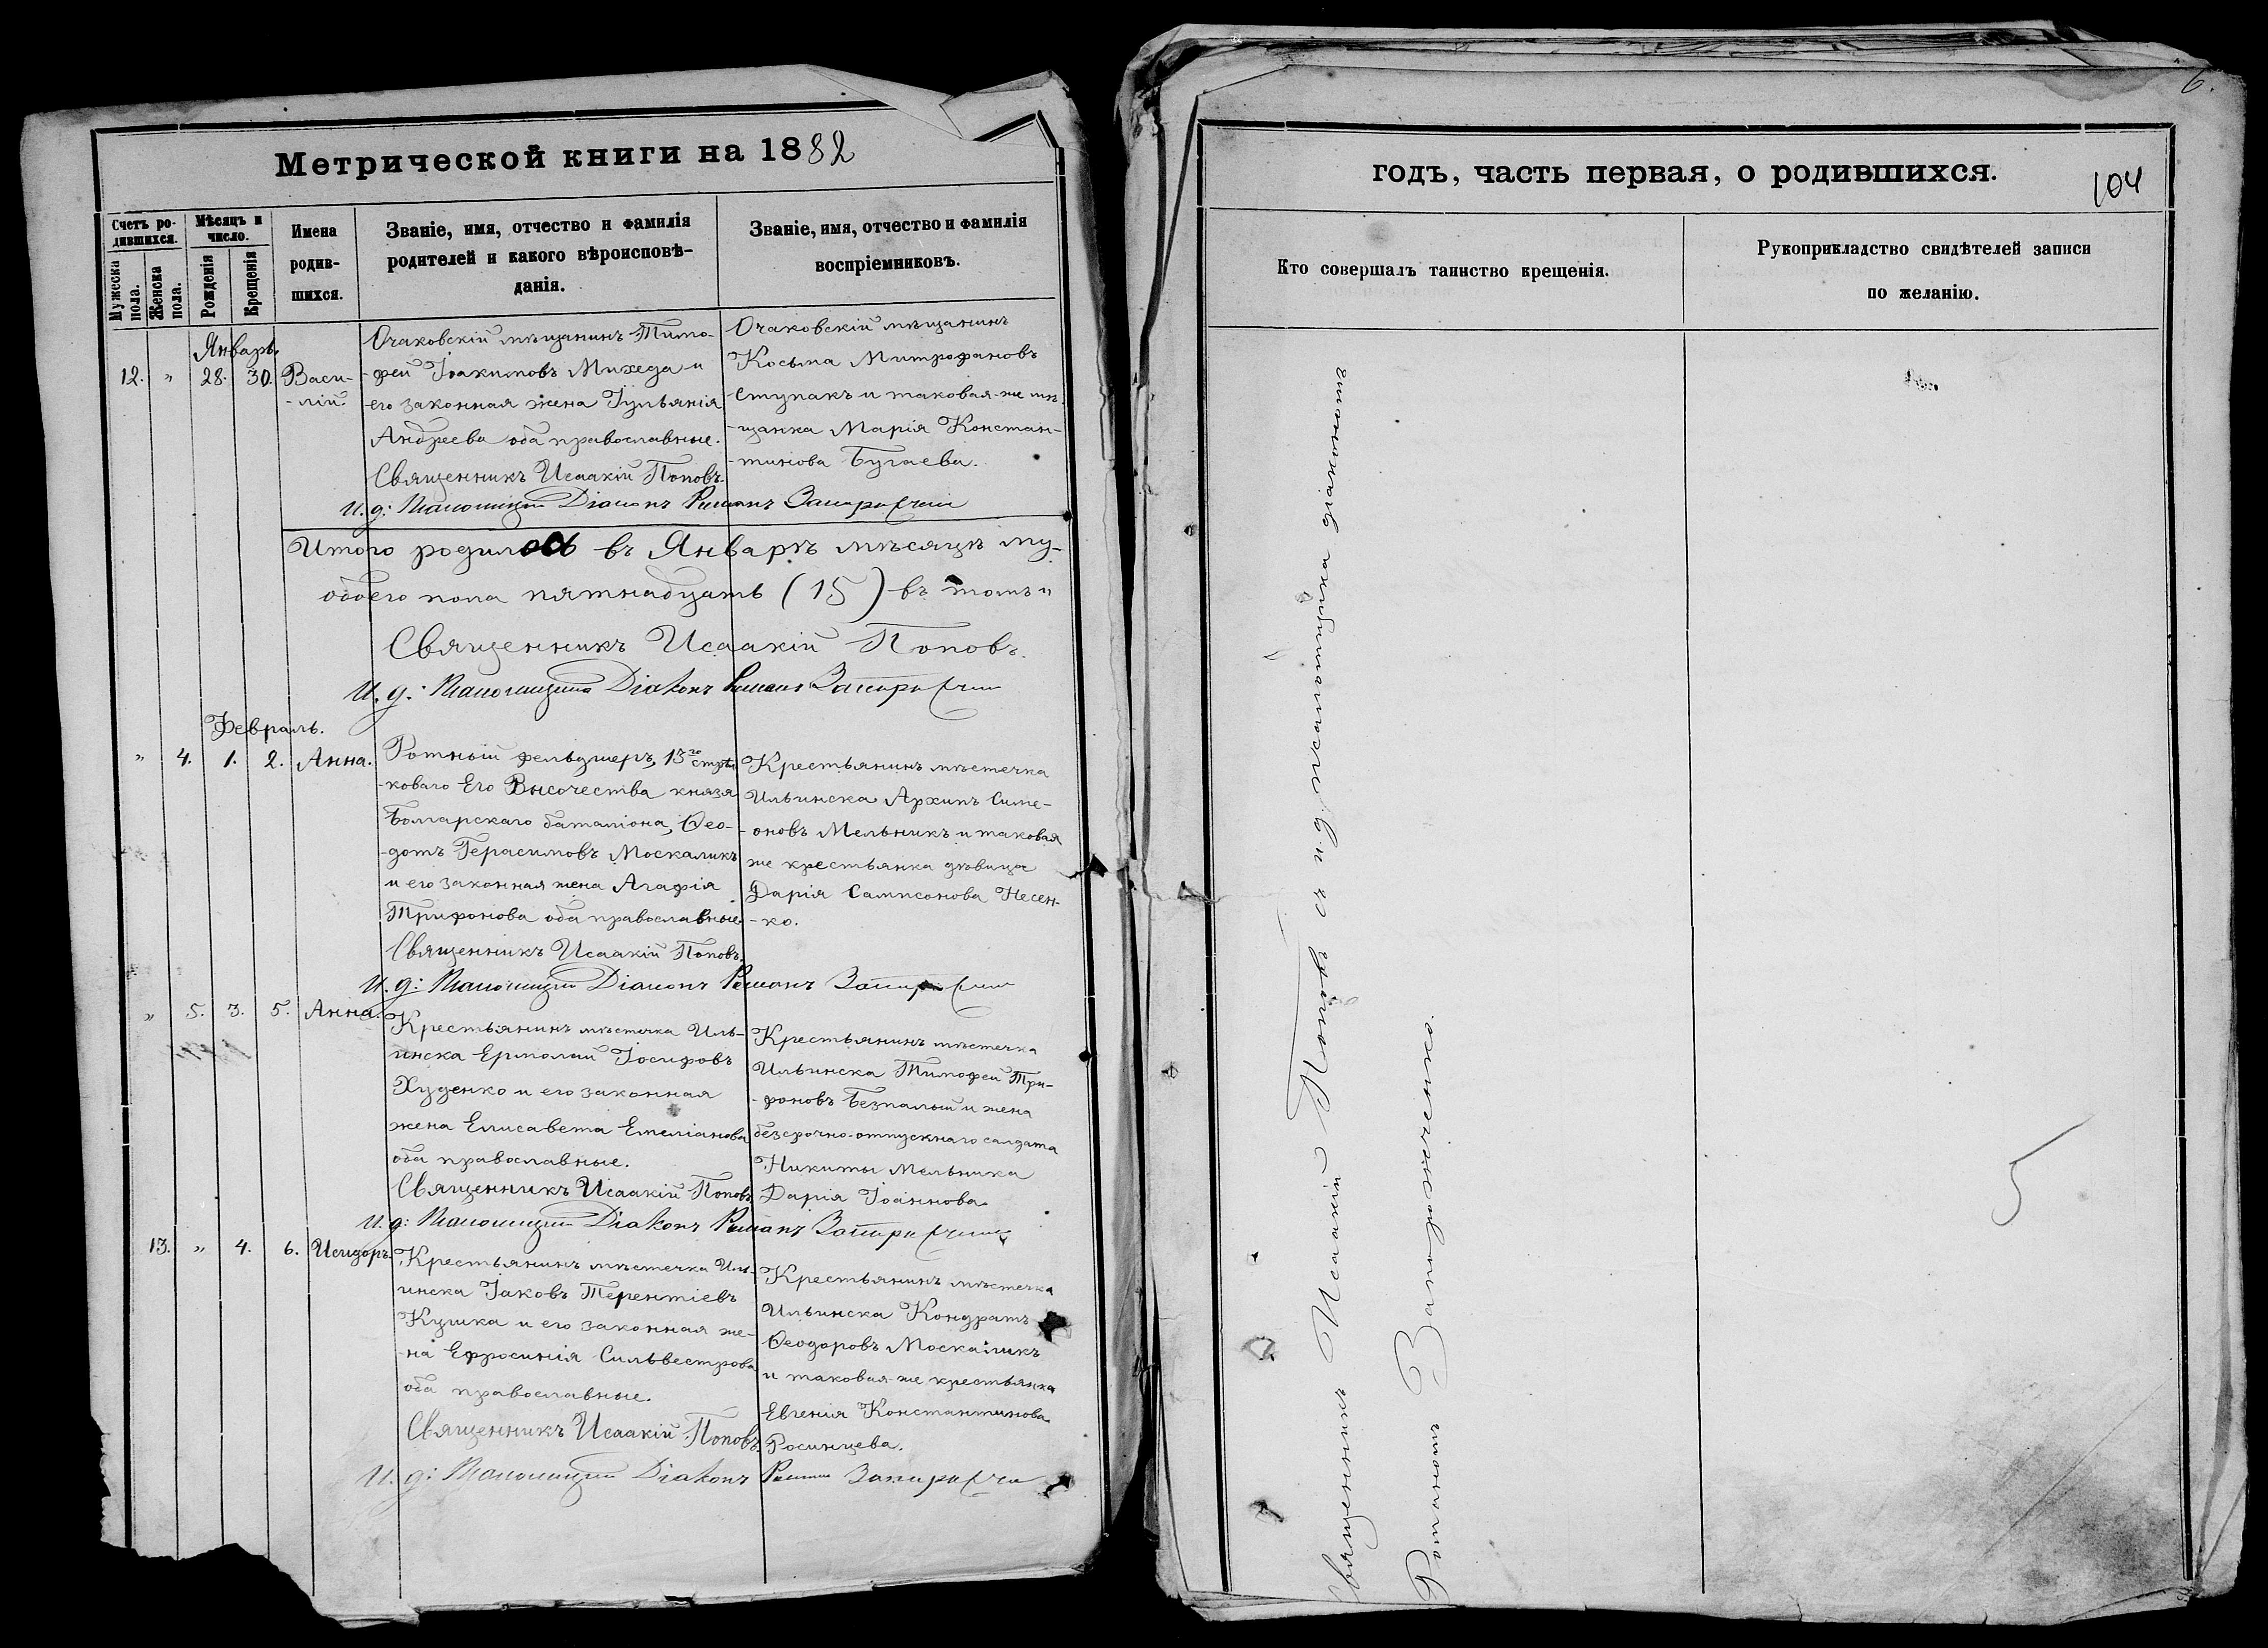 Метрической книги на 1882
Счетъ ро-
дившихся.
Мужеска пола.
Женска пола.
Мѣсяцъ и
число.
Рожденія
Крещенія
Имена
родив-
шихся.
Званіе, имя, отчество и фамилія
родителей и какого вѣроисповѣ-
данія.
Званіе, имя, отчество и фамилія
воспріемниковъ.
Январь.
12. " 28. 30. Васи-
-лій.
Очаковскій мѣщанинъ Тимо-
-фей Іоакимовъ Михеда и
его законная жена Іульянія
Андреева оба православные.
Священникъ Исаакій Поповъ.
Очаковскій мѣщанинъ
Косьма Митрофановъ
Ступакъ и таковая-же мѣ-
-щанка Марія Констан-
-тинова Бугаева.
И. д: Псаломщика Діаконъ Романъ
Итого родилось въ Январѣ мѣсяцѣ му-
обоего пола пятнадцать (15) въ томъ
Священникъ Исаакій Поповъ.
И. д: Псаломщика Діаконъ Романъ
Февраль.
" 4. 1. 2. Анна.
Ротный фельдшеръ, 13го стрѣл-
-коваго Его Высочества князя
Болгарскаго баталіона, Ѳео-
-дотъ Герасимовъ Москаликъ
и его законная жена Агафія
Трифонова оба православные.
Священникъ Исаакій Поповъ.
Крестьянинъ мѣстечка
Ильинска Архипъ Симе-
-оновъ Мельникъ и таковая
же крестьянка дѣвица
Дарія Сампсонова Несен-
-ко.
И. д: Псаломщика Діаконъ Романъ
" 5. 3. 5. Анна.
Крестьянинъ мѣстечка Иль-
инска Ермолай Іосифовъ
Худенко и его законная
жена Елисавета Емеліанова
оба православные.
Священникъ Исаакій Поповъ.
Крестьянинъ мѣстечка
Ильинска Тимофей Три-
-фоновъ Безпалый и жена
безсрочно-отпускнаго солдата
Никиты Мельника
Дарія Іоаннова
И. д: Псаломщика Діаконъ Романъ
13. " 4. 6. Исидоръ.
Крестьянинъ мѣстечка Иль-
инска Іаковъ Терентіевъ
Кушка и его законная же-
-на Ефросинія Сильвестрова
оба православные.
Священникъ Исаакій Поповъ.
Крестьянинъ мѣстечка
Ильинска Кондратъ
Ѳеодоровъ Москаликъ
и таковая-же крестьянка
Евгенія Константинова
Росинцева.
И. д: Псаломщика Діаконъ Романъ
6.
годъ, часть первая, о родившихся.
104
Кто совершалъ таинство крещенія.
Рукоприкладство свидѣтелей записи
по желанію.
Священникъ Исаакій Поповъ съ и.д. псаломщика діакономъ
Романомъ Запорожченко.
5